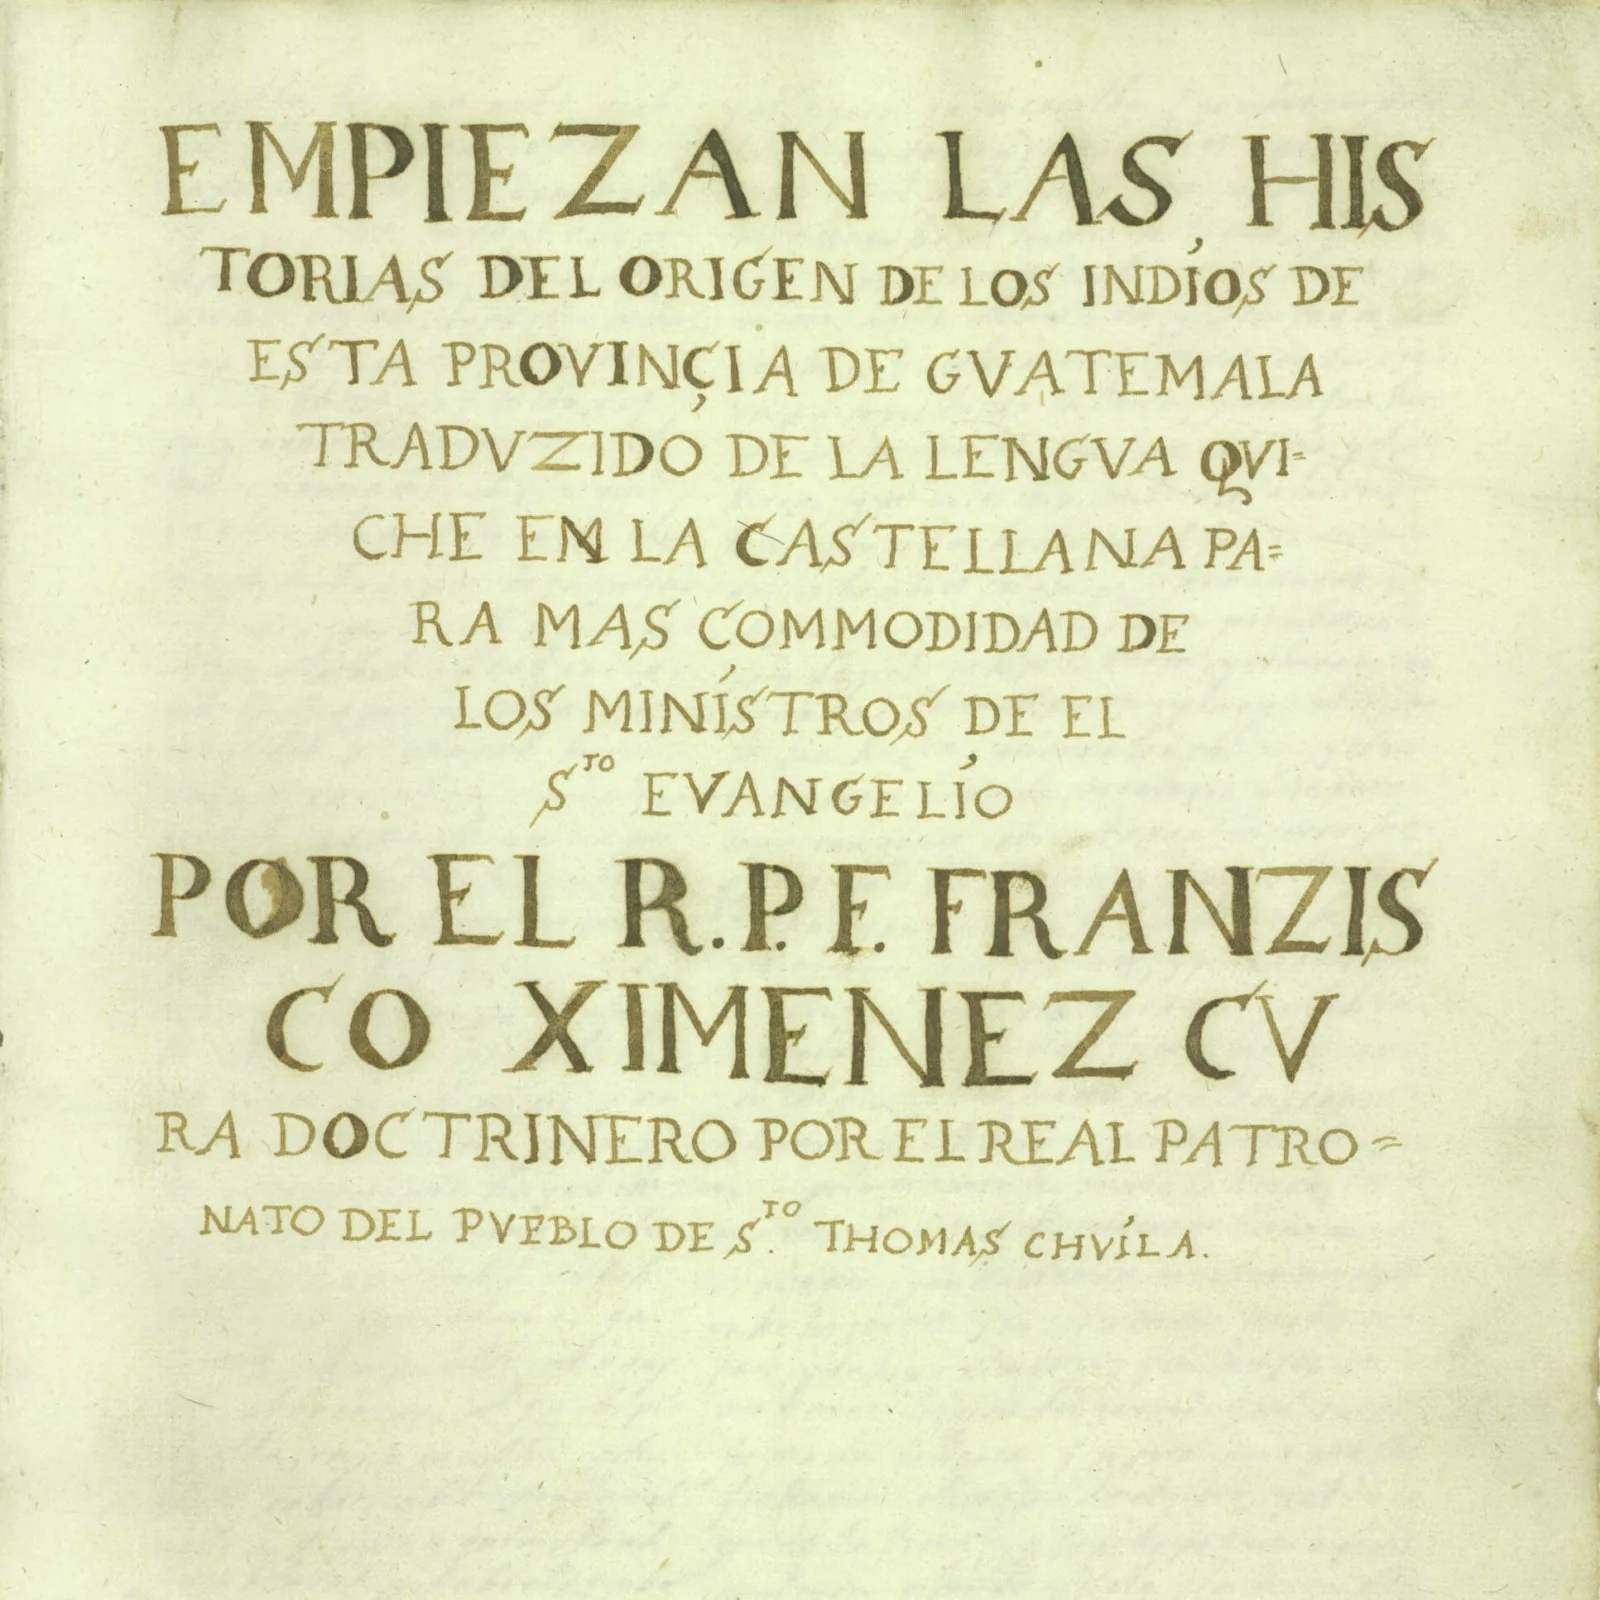 EMPIEZAN LAS HIS
TORIAS DEL ORIGEN DE LOS INDIOS DE
ESTA PROVINÇIA DE GVATEMALA
TRADVZIDO DE LA LENGVA QVI=
CHE EN LA CASTELLANA PA=
RA MAS COMMODIDAD DE
LOS MINISTROS DE EL
S.TO EVANGELIO
POR EL R.P.F. FRANZIS
CO XIMENEZ CV
RA DOCTRINERO POR EL REAL PATRO=
NATO DEL PVEBLO DE S.TO THOMAS CHVILA.